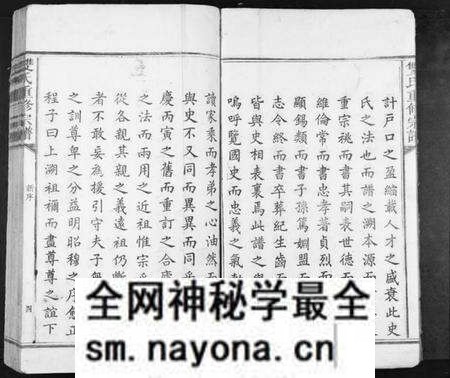 計戶口之盈縮載人才之盛衰此史
氏之法也而譜之溯本源而
重宗祧而書其嗣表世德而
維倫常而書忠孝著貞烈而
錫類而書子孫篤姻盟而
志令終而書卒葬紀生齒而
皆與史相表裏焉此譜之與
嗚呼覽國史而忠義之氣
讀家乘而孝弟之心油然
與史不又同而異異而同乎
慶丙寅之舊而重訂之合
之法而兩用之近祖惟宗
從各親其親之義遠祖仍斷
者不敢妄為援引守夫子無
之訓尊卑之分益明昭穆之序愈正
程子曰上溯祖禰而盡尊尊之誼下
雙氏重修宗譜
新序
四
雙氏重修宗譜
全网神秘学最全
sm.nayona.cn